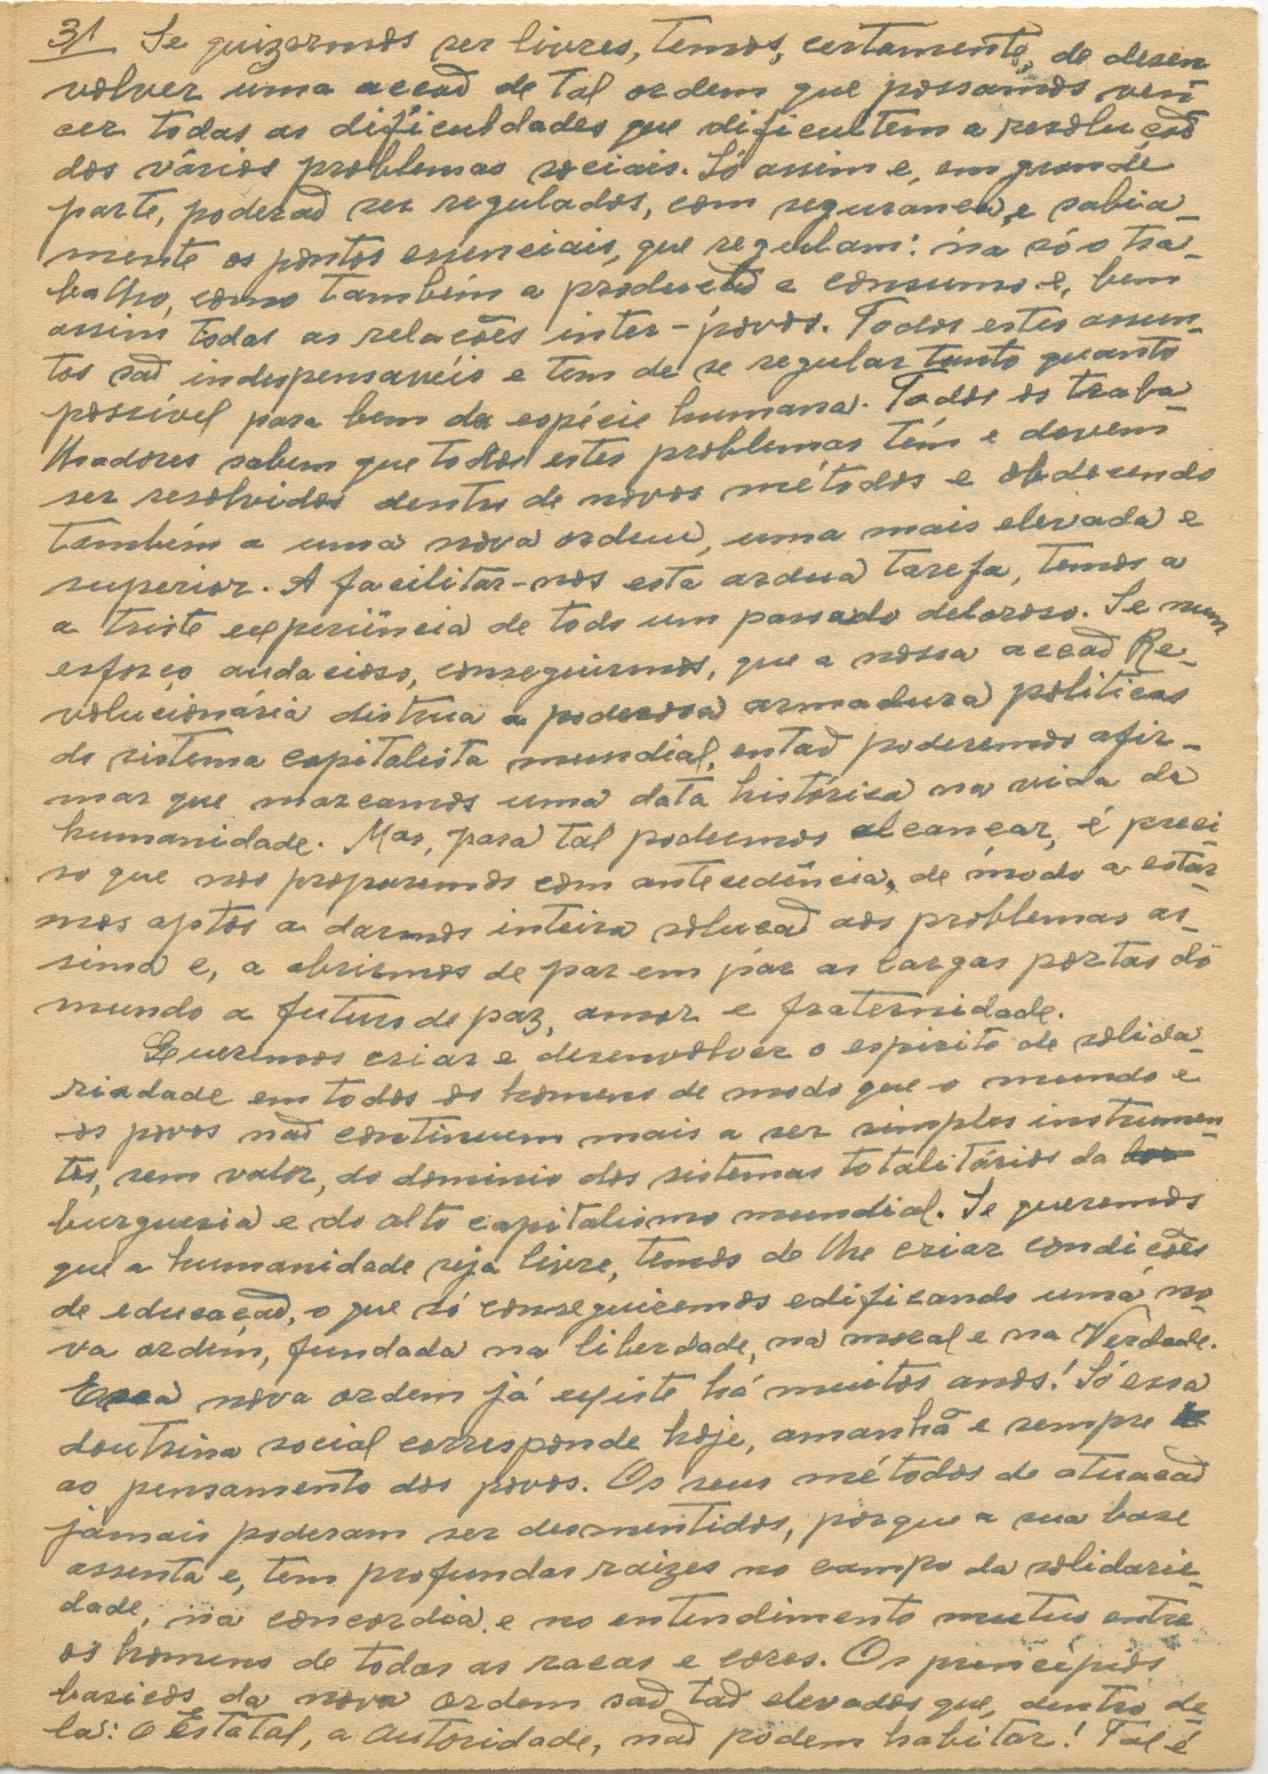 31 Se quizermos ser livres, temos, certamente, de desen
volver uma accaõ de tal ordem que possamos ven
cer todas as dificuldades que dificultem a resolucaõ
dos vários problemas sociais. Só assim e, em grande
parte, poderaõ ser regulados, com seguranca, e sabia_
mente os pontos essenciais, que regulam: na só o tra_
balho, como tambêm a producaõ e consumo e, bem
assim todas as relacões inter-povos. Todos estes assun_
tos saõ indespensaveis e tem de se regular tanto quanto
possível para bem da espécie humana. Todos os traba_
lhadores sabem que todos estes problemas têm e devem
ser resolvidos dentro de novos métodos e obdecendo
tambêm a uma nova ordem, uma mais elevada e
superior. A facilitar-nos esta ardua tarefa, temos a
a triste experiência de todo um passado doloroso. Se num
esforço audacioso, conseguirmos, que a nossa accaõ Re_
volucionária distrua a poderosa armadura politicas
do sistema capitalista mundial, entaõ poderemos afir_
mar que marcamos uma data histórica na vida da
humanidade. Mas, para tal podermos alcançar, é preci_
so que nos preparemos com antecedência, de modo a estar_
mos aptos a darmos inteira solucaõ aos problemas as_
sima e, a abrirmos de par em par as largas portas do
mundo a futuro de paz, amor e fraternidade.
Queremos criar e desenvolver o espirito de solida_
riadade em todos os homens de modo que o mundo e
os povos naõ continuem mais a ser simples instrumen_
tos, sem valor, do dominio dos sistemas totalitários da
burguesia e do alto capitalismo mundial. Se queremos
que a humanidade seja livre, temos de lhe criar condicões
de educacaõ, o que só conseguiremos edificando uma no_
va ordem, fundada na liberdade, na moral e na Verdade.
Essa nova ordem já existe há muitos anos! Só essa
doutrina social corresponde hoje, amanhã e sempre
ao pensamento dos povos. Os seus métodos de atuacaõ
jamais poderam ser desmentidos, porque a sua base
assenta e, tem profundas raizes no campo da solidarie_
dade, na concordia, e no entendimento mutuo entre
os homens de todas as racas e cores. Os princípios
basicos da nova ordem saõ taõ elevados que, dentro de_
la: O Estatal, a Autoridade, naõ podem habitar! Tal é